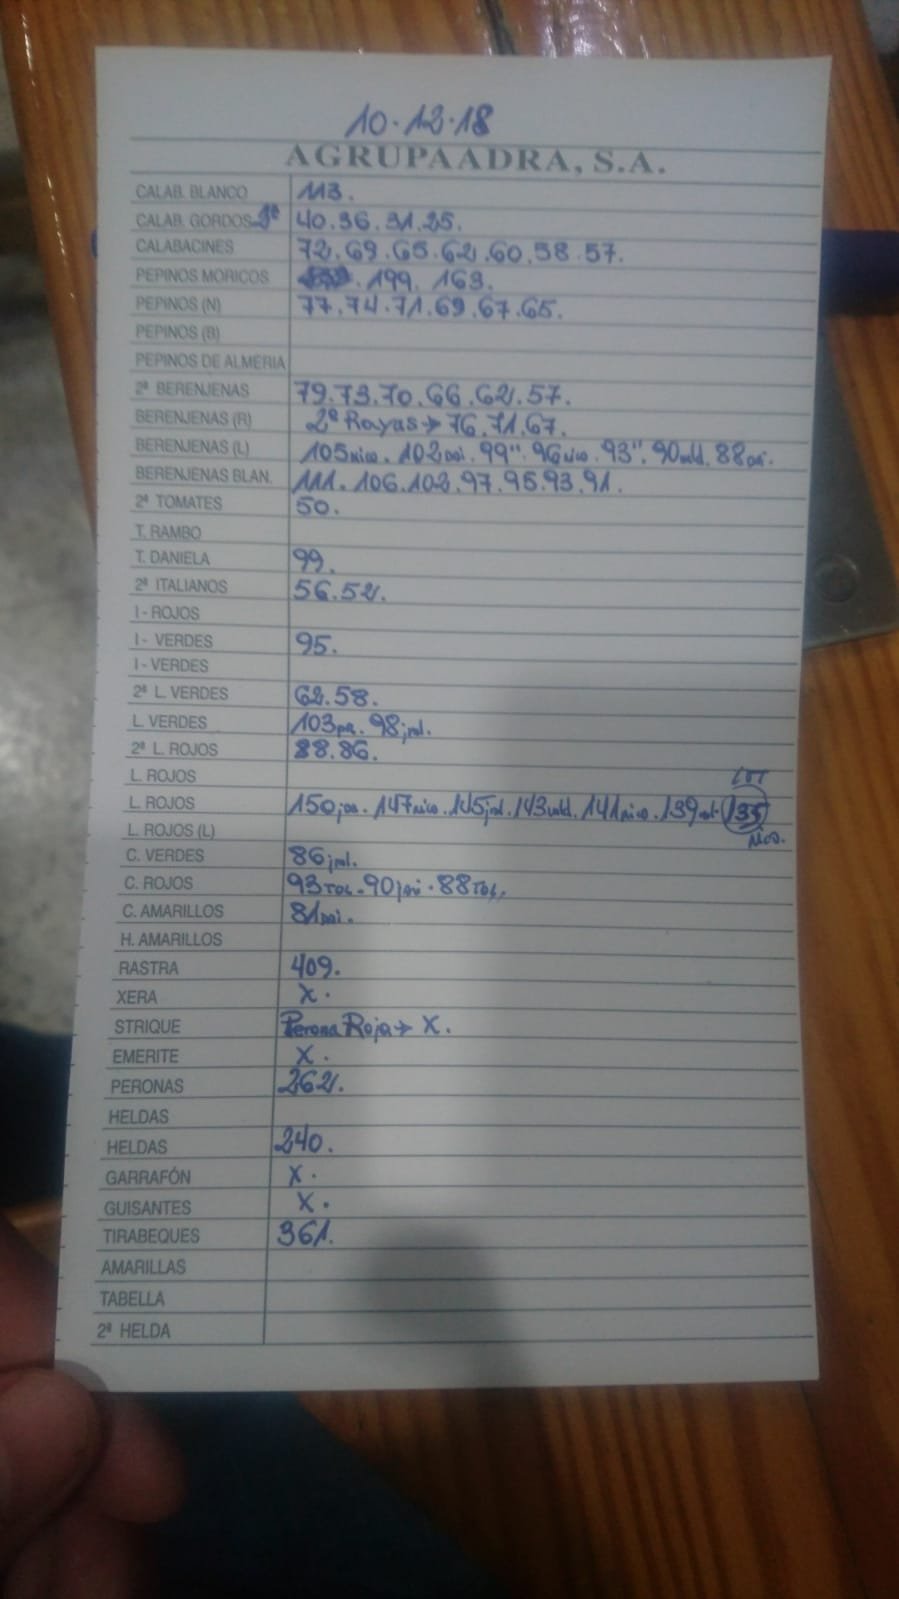 10.12.18
AGRUPAADRA, S.A.
CALAB. BLANCO 113.
CALAB. GORDOS 2ª 40.36.31.25.
CALABACINES 72.69.65.62.60.58.57.
PEPINOS MORICOS .199. 163.
PEPINOS (N) 77.74.71.69.67.65.
PEPINOS (B)
PEPINOS DE ALMERIA
2ª BERENJENAS 79.73.70.66.62.57.
BERENJENAS (R) 2ª Rayas→76.71.67.
BERENJENAS (L) 105 nico. 102 . 99". 96 nico. 93". 90 . 88 .
BERENJENAS BLAN. 111. 106.102.97.95.93.91.
2ª TOMATES 50.
T. RAMBO
T. DANIELA 99.
2ª ITALIANOS 56.52.
I - ROJOS
I - VERDES 95.
I - VERDES
2ª L. VERDES 62.58.
L. VERDES 103 . 98 .
2ª L. ROJOS 88.86.
L. ROJOS
L. ROJOS 150 . 147 nico. 145 . 143 . 141 nico. 139 . 135
L. ROJOS (L)
C. VERDES 86 .
C. ROJOS 93 . 90 . 88 .
C. AMARILLOS 81 .
H. AMARILLOS
RASTRA 409.
XERA X.
STRIQUE Perona Roja→ X.
EMERITE X.
PERONAS 262.
HELDAS
HELDAS 240.
GARRAFÓN X.
GUISANTES X.
TIRABEQUES 361.
AMARILLAS
TABELLA
2ª HELDA